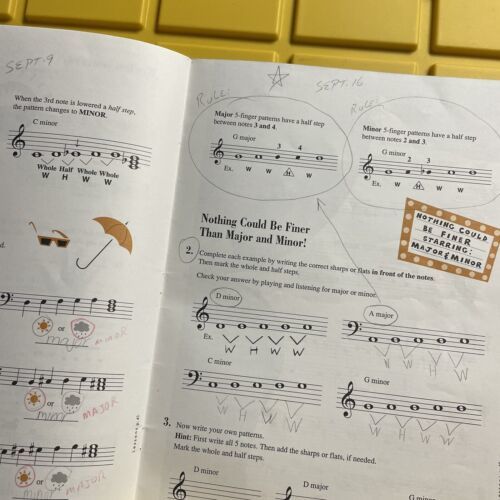 SEPT. 9
When the 3rd note is lowered a half step,
the pattern changes to MINOR.
C minor
Whole Half Whole Whole
W H W W
or
major MINOR
or
minor MAJOR
or
minor MAJOR
RULE:
SEPT. 16
Major 5-finger patterns have a half step
between notes 3 and 4.
G major
3 4
Ex. W W H W
RULE:
Minor 5-finger patterns have a half step
between notes 2 and 3.
G minor
2 3
Ex. W H W W
Nothing Could Be Finer
Than Major and Minor!
NOTHING COULD
BE FINER
STARRING:
MAJOR & MINOR
2. Complete each example by writing the correct sharps or flats in front of the notes.
Then mark the whole and half steps.
Check your answer by playing and listening for major or minor.
D minor
Ex.
W H W W
A major
W W H W
C minor
W H W W
G minor
W H W W
3. Now write your own patterns.
Hint: First write all 5 notes. Then add the sharps or flats, if needed.
Mark the whole and half steps.
D minor
D major
G minor